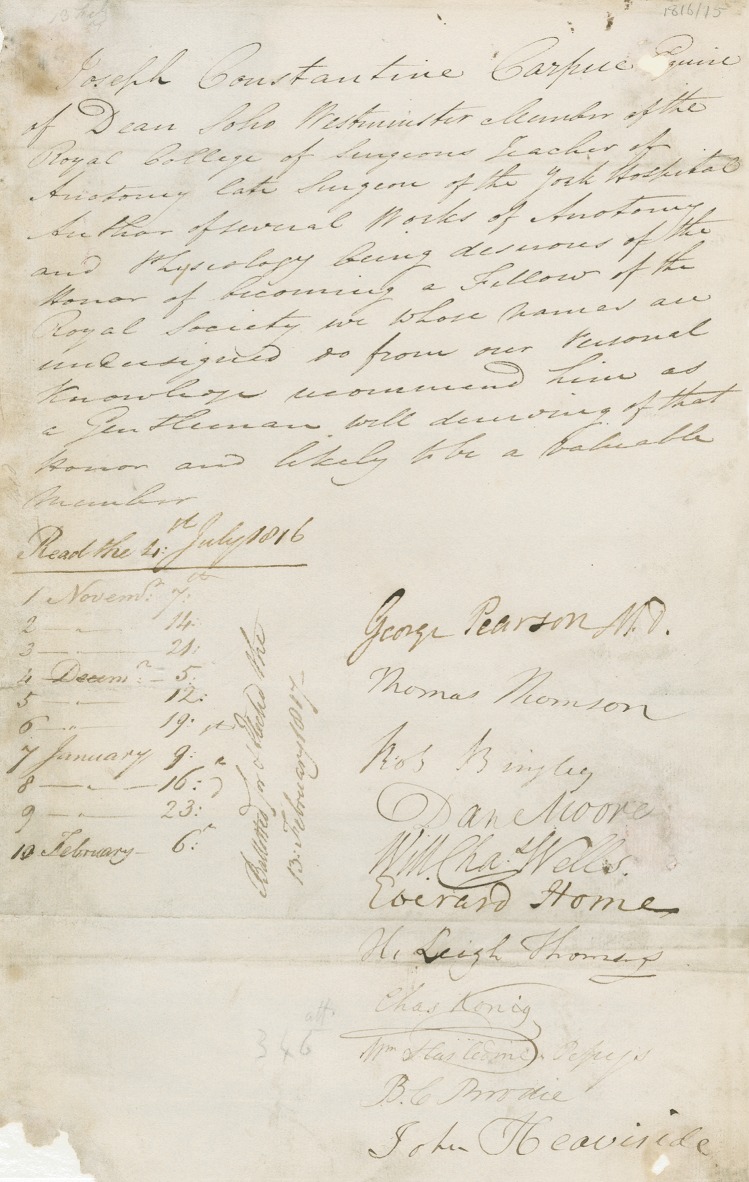 1816/15
Joseph Constantine Carpue Esquire
of Dean Soho Westminster Member of the
Royal College of Surgeons Teacher of
Anatomy late Surgeon of the York Hospital
Author of several Works of Anatomy
and Physiology being desirous of the
Honor of becoming a Fellow of the
Royal Society we whose names are
undersigned do from our Personal
Knowledge recommend him as
a Gentleman well deserving of that
Honor and likely to be a valuable
Member
Read the 4: July 1816
1 Novemr: 7th
2 — " — 14:
3 — " — 21:
4 Decemr: — 5:
5 — " — 12:
6 — " — 19:
7 January 9:
8 — " — 16:
9 — " — 23:
10 February — 6:
Balloted for & Elected the
13: February 1817
George Pearson M.D.
Thomas Thomson
Rob Bingley
Dan Moore
Will. Chas. Wells.
Everard Home
H. Leigh Thomas
Chas Konig
Wm Hasledine Pepys
B. C. Brodie
John Heaviside
att.
346